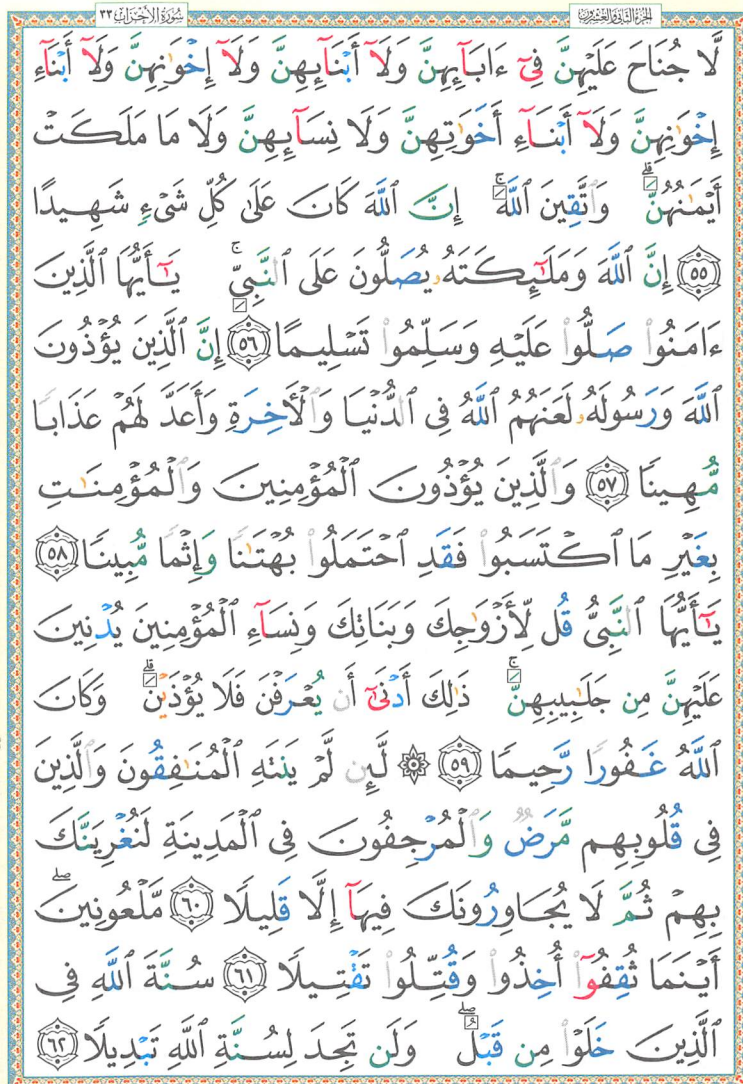 سُورَةُ الأَحْزَابِ ٣٣
الجُزْءُ الثَّانِي وَالعِشْرُونَ
لَّا جُنَاحَ عَلَيْهِنَّ فِىٓ ءَابَآئِهِنَّ وَلَآ أَبْنَآئِهِنَّ وَلَآ إِخْوَٰنِهِنَّ وَلَآ أَبْنَآءِ
إِخْوَٰنِهِنَّ وَلَآ أَبْنَآءِ أَخَوَٰتِهِنَّ وَلَا نِسَآئِهِنَّ وَلَا مَا مَلَكَتْ
أَيْمَٰنُهُنَّ ۗ وَٱتَّقِينَ ٱللَّهَ ۚ إِنَّ ٱللَّهَ كَانَ عَلَىٰ كُلِّ شَىْءٍ شَهِيدًا
٥٥ إِنَّ ٱللَّهَ وَمَلَٰٓئِكَتَهُۥ يُصَلُّونَ عَلَى ٱلنَّبِىِّ ۚ يَٰٓأَيُّهَا ٱلَّذِينَ
ءَامَنُوا۟ صَلُّوا۟ عَلَيْهِ وَسَلِّمُوا۟ تَسْلِيمًا ٥٦ إِنَّ ٱلَّذِينَ يُؤْذُونَ
ٱللَّهَ وَرَسُولَهُۥ لَعَنَهُمُ ٱللَّهُ فِى ٱلدُّنْيَا وَٱلْأَخِرَةِ وَأَعَدَّ لَهُمْ عَذَابًا
مُّهِينًا ٥٧ وَٱلَّذِينَ يُؤْذُونَ ٱلْمُؤْمِنِينَ وَٱلْمُؤْمِنَٰتِ
بِغَيْرِ مَا ٱكْتَسَبُوا۟ فَقَدِ ٱحْتَمَلُوا۟ بُهْتَٰنًا وَإِثْمًا مُّبِينًا ٥٨
يَٰٓأَيُّهَا ٱلنَّبِىُّ قُل لِّأَزْوَٰجِكَ وَبَنَاتِكَ وَنِسَآءِ ٱلْمُؤْمِنِينَ يُدْنِينَ
عَلَيْهِنَّ مِن جَلَٰبِيبِهِنَّ ۚ ذَٰلِكَ أَدْنَىٰٓ أَن يُعْرَفْنَ فَلَا يُؤْذَيْنَ ۗ وَكَانَ
ٱللَّهُ غَفُورًا رَّحِيمًا ٥٩ ۞ لَّئِن لَّمْ يَنتَهِ ٱلْمُنَٰفِقُونَ وَٱلَّذِينَ
فِى قُلُوبِهِم مَّرَضٌ وَٱلْمُرْجِفُونَ فِى ٱلْمَدِينَةِ لَنُغْرِيَنَّكَ
بِهِمْ ثُمَّ لَا يُجَاوِرُونَكَ فِيهَآ إِلَّا قَلِيلًا ٦٠ مَّلْعُونِينَ ۖ
أَيْنَمَا ثُقِفُوٓا۟ أُخِذُوا۟ وَقُتِّلُوا۟ تَقْتِيلًا ٦١ سُنَّةَ ٱللَّهِ فِى
ٱلَّذِينَ خَلَوْا۟ مِن قَبْلُ ۖ وَلَن تَجِدَ لِسُنَّةِ ٱللَّهِ تَبْدِيلًا ٦٢